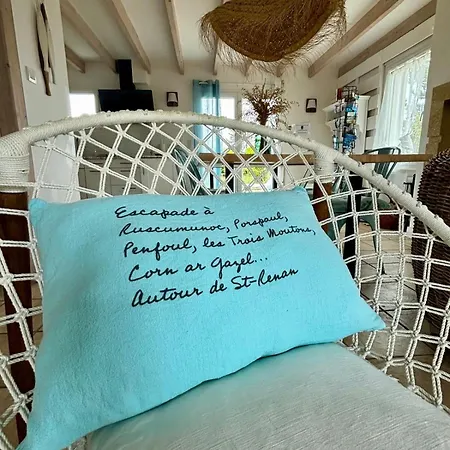 Escapade à
Ruscumunoc, Porspaul,
Penfoul, les Trois Moutons,
Corn ar Gazel...
Autour de St-Renan